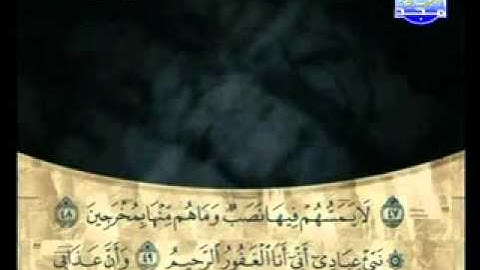 مجد
٤٧ لَا يَمَسُّهُمْ فِيهَا نَصَبٌ وَمَا هُم مِّنْهَا بِمُخْرَجِينَ ٤٨
۞ نَبِّئْ عِبَادِي أَنِّي أَنَا الْغَفُورُ الرَّحِيمُ ٤٩ وَأَنَّ عَذَابِي